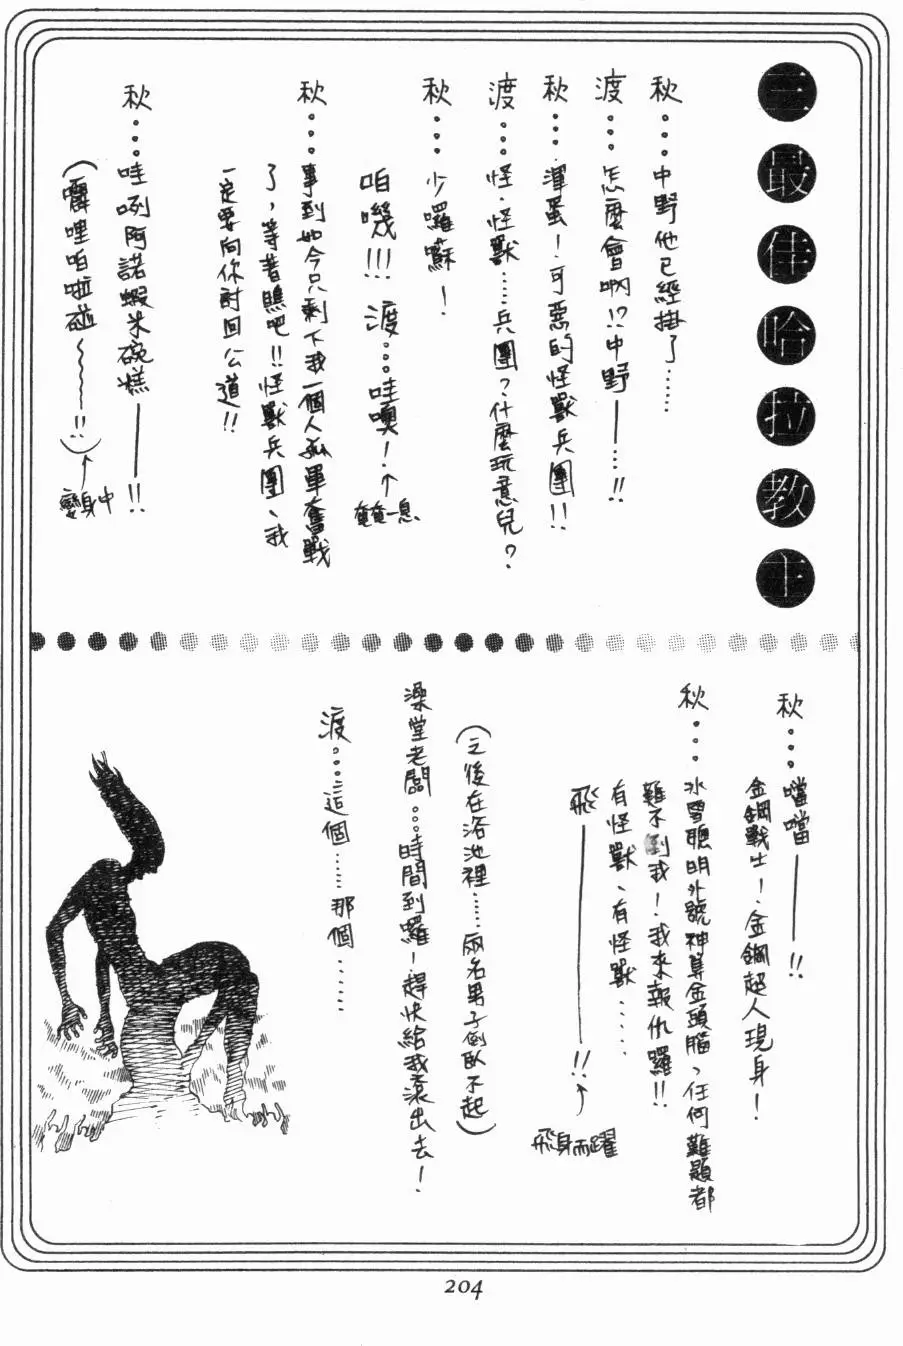 三最佳哈拉教主
秋…中野他已經掛了……
渡…怎麼會啊!?中野——…!!
秋…渾蛋!可惡的怪獸兵團!!
渡…怪、怪獸……兵團?什麼玩意兒?
秋…少囉嗦!
咱嘰!!! 渡…哇噢!
奄奄一息
秋…事到如今只剩下我一個人孤單奮戰
了,等著瞧吧!!怪獸兵團、我
一定要向你討回公道!!
秋…哇咧阿諾蝦米碗糕——!!
(嗶哩啪啦碰~~~!!)
變身中
秋…噹噹——!!
金鋼戰士!金鋼超人現身!
秋…冰雪聰明外號神算金頭腦、任何難題都
難不倒我!我來報仇囉!!
有怪獸、有怪獸……
飛——!!
飛身而躍
(之後在浴池裡……兩名男子倒臥不起)
澡堂老闆…時間到囉!趕快給我滾出去!
渡…這個……那個……
204